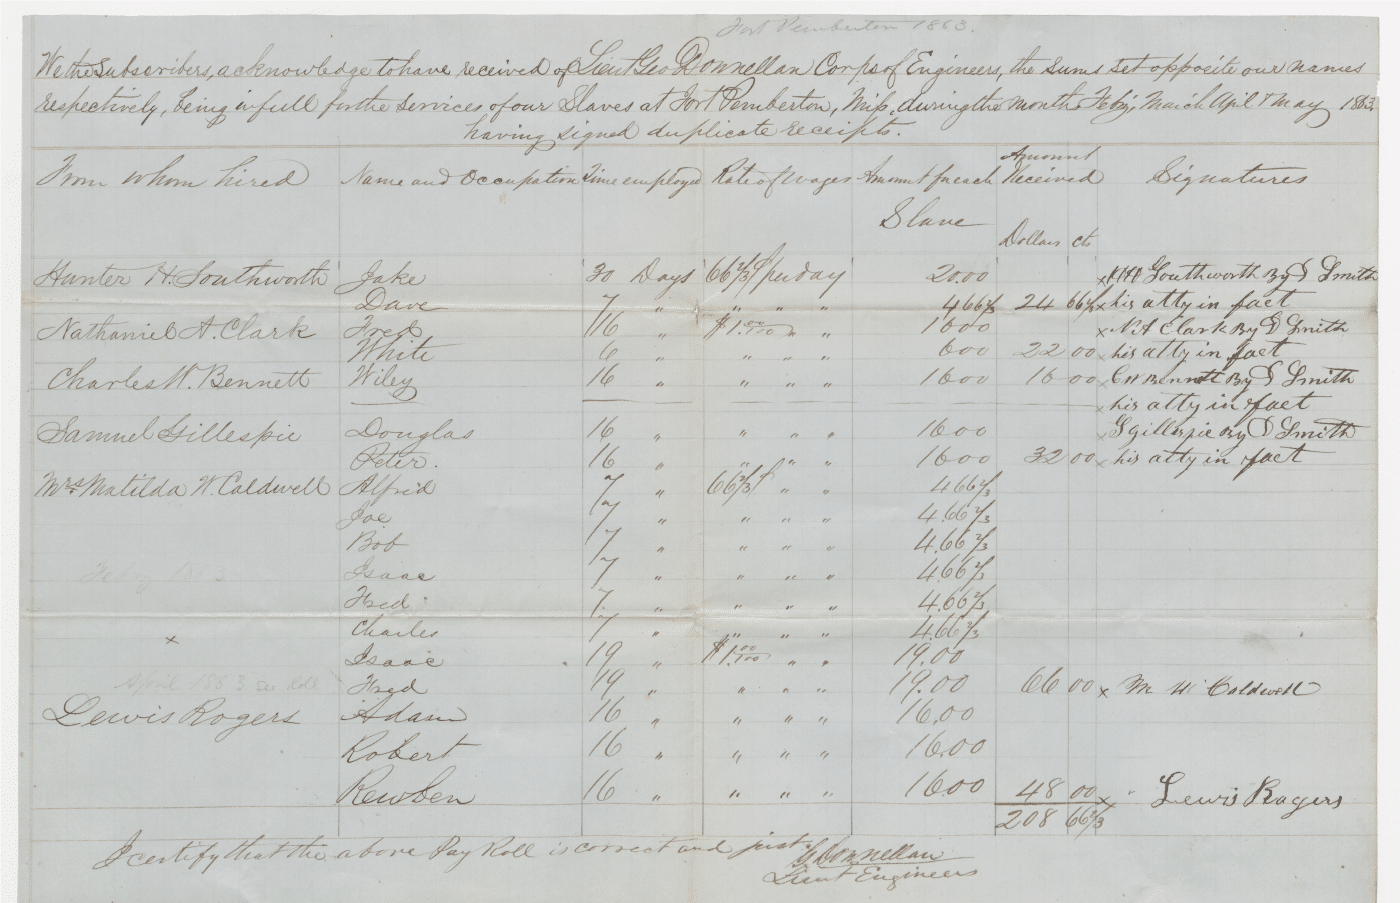 Fort Pemberton 1863.
We the Subscribers, acknowledge to have received of Lieut Geo Donnellan Corps of Engineers, the sums set opposite our names
respectively, being in full for the services of our Slaves at Fort Pemberton, Miss, during the months Feby, March April & May 1863.
having signed duplicate receipts.
From whom hired Name and Occupation Time employed Rate of wages Amount for each Slave Amount Received Signatures
Dollars cts
Hunter H. Southworth Jake 30 Days 66 2/3 ¢ per day 20.00 x HH Southworth By D Smith
Dave 7 " " " " 4 66 2/3 24 66 2/3 x his atty in fact
Nathaniel A. Clark Fred 16 " $1.00/100 " " 16 00 x N. A Clark By D Smith
White 6 " " " " 6 00 22 00 x his atty in fact
Charles W. Bennett Wiley 16 " " " " 16 00 16 00 x C W Bennett By D Smith
x his atty in fact
Samuel Gillespie Douglas 16 " " " " 16 00 x S Gillespie By D Smith
Peter. 16 " " " " 16 00 32 00 x his atty in fact
Mrs Matilda W. Caldwell Alfrid 7 " 66 2/3 ¢ " " 4 66 2/3
Joe 7 " " " " 4.66 2/3
Bob 7 " " " " 4.66 2/3
Feby 1863 Isaac 7 " " " " 4.66 2/3
Fred 7 " " " " 4.66 2/3
x Charles 7 " " " " 4.66 2/3
Isaac 19 " $1.00/100 " " 19.00
April 1863 see Roll Fred 19 " " " " 19.00 66 00 x M W Caldwell
Lewis Rogers Adam 16 " " " " 16.00
Robert 16 " " " " 16.00
Rewben 16 " " " " 16.00 48 00 x " Lewis Rogers
208 66 2/3
I certify that the above Pay Roll is correct and just.
G Donnellan
Lieut Engineers